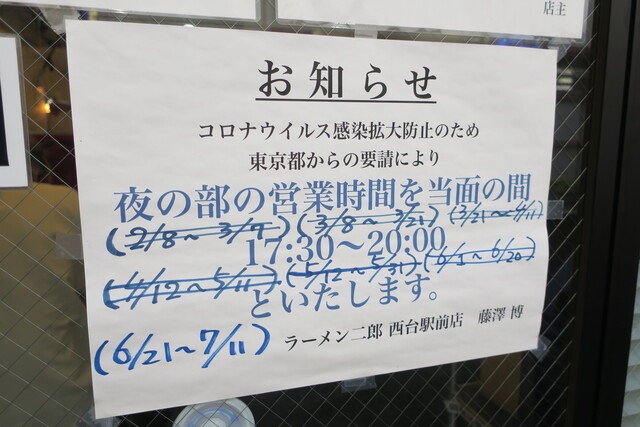 店主
お知らせ
コロナウイルス感染拡大防止のため
東京都からの要請により
夜の部の営業時間を当面の間
(2/8〜3/7)(3/8〜3/21)(3/21〜4/11)
17:30〜20:00
(4/12〜5/11)(5/12〜5/31)(6/1〜6/20)
といたします。
(6/21〜7/11)
ラーメン二郎 西台駅前店 藤澤 博